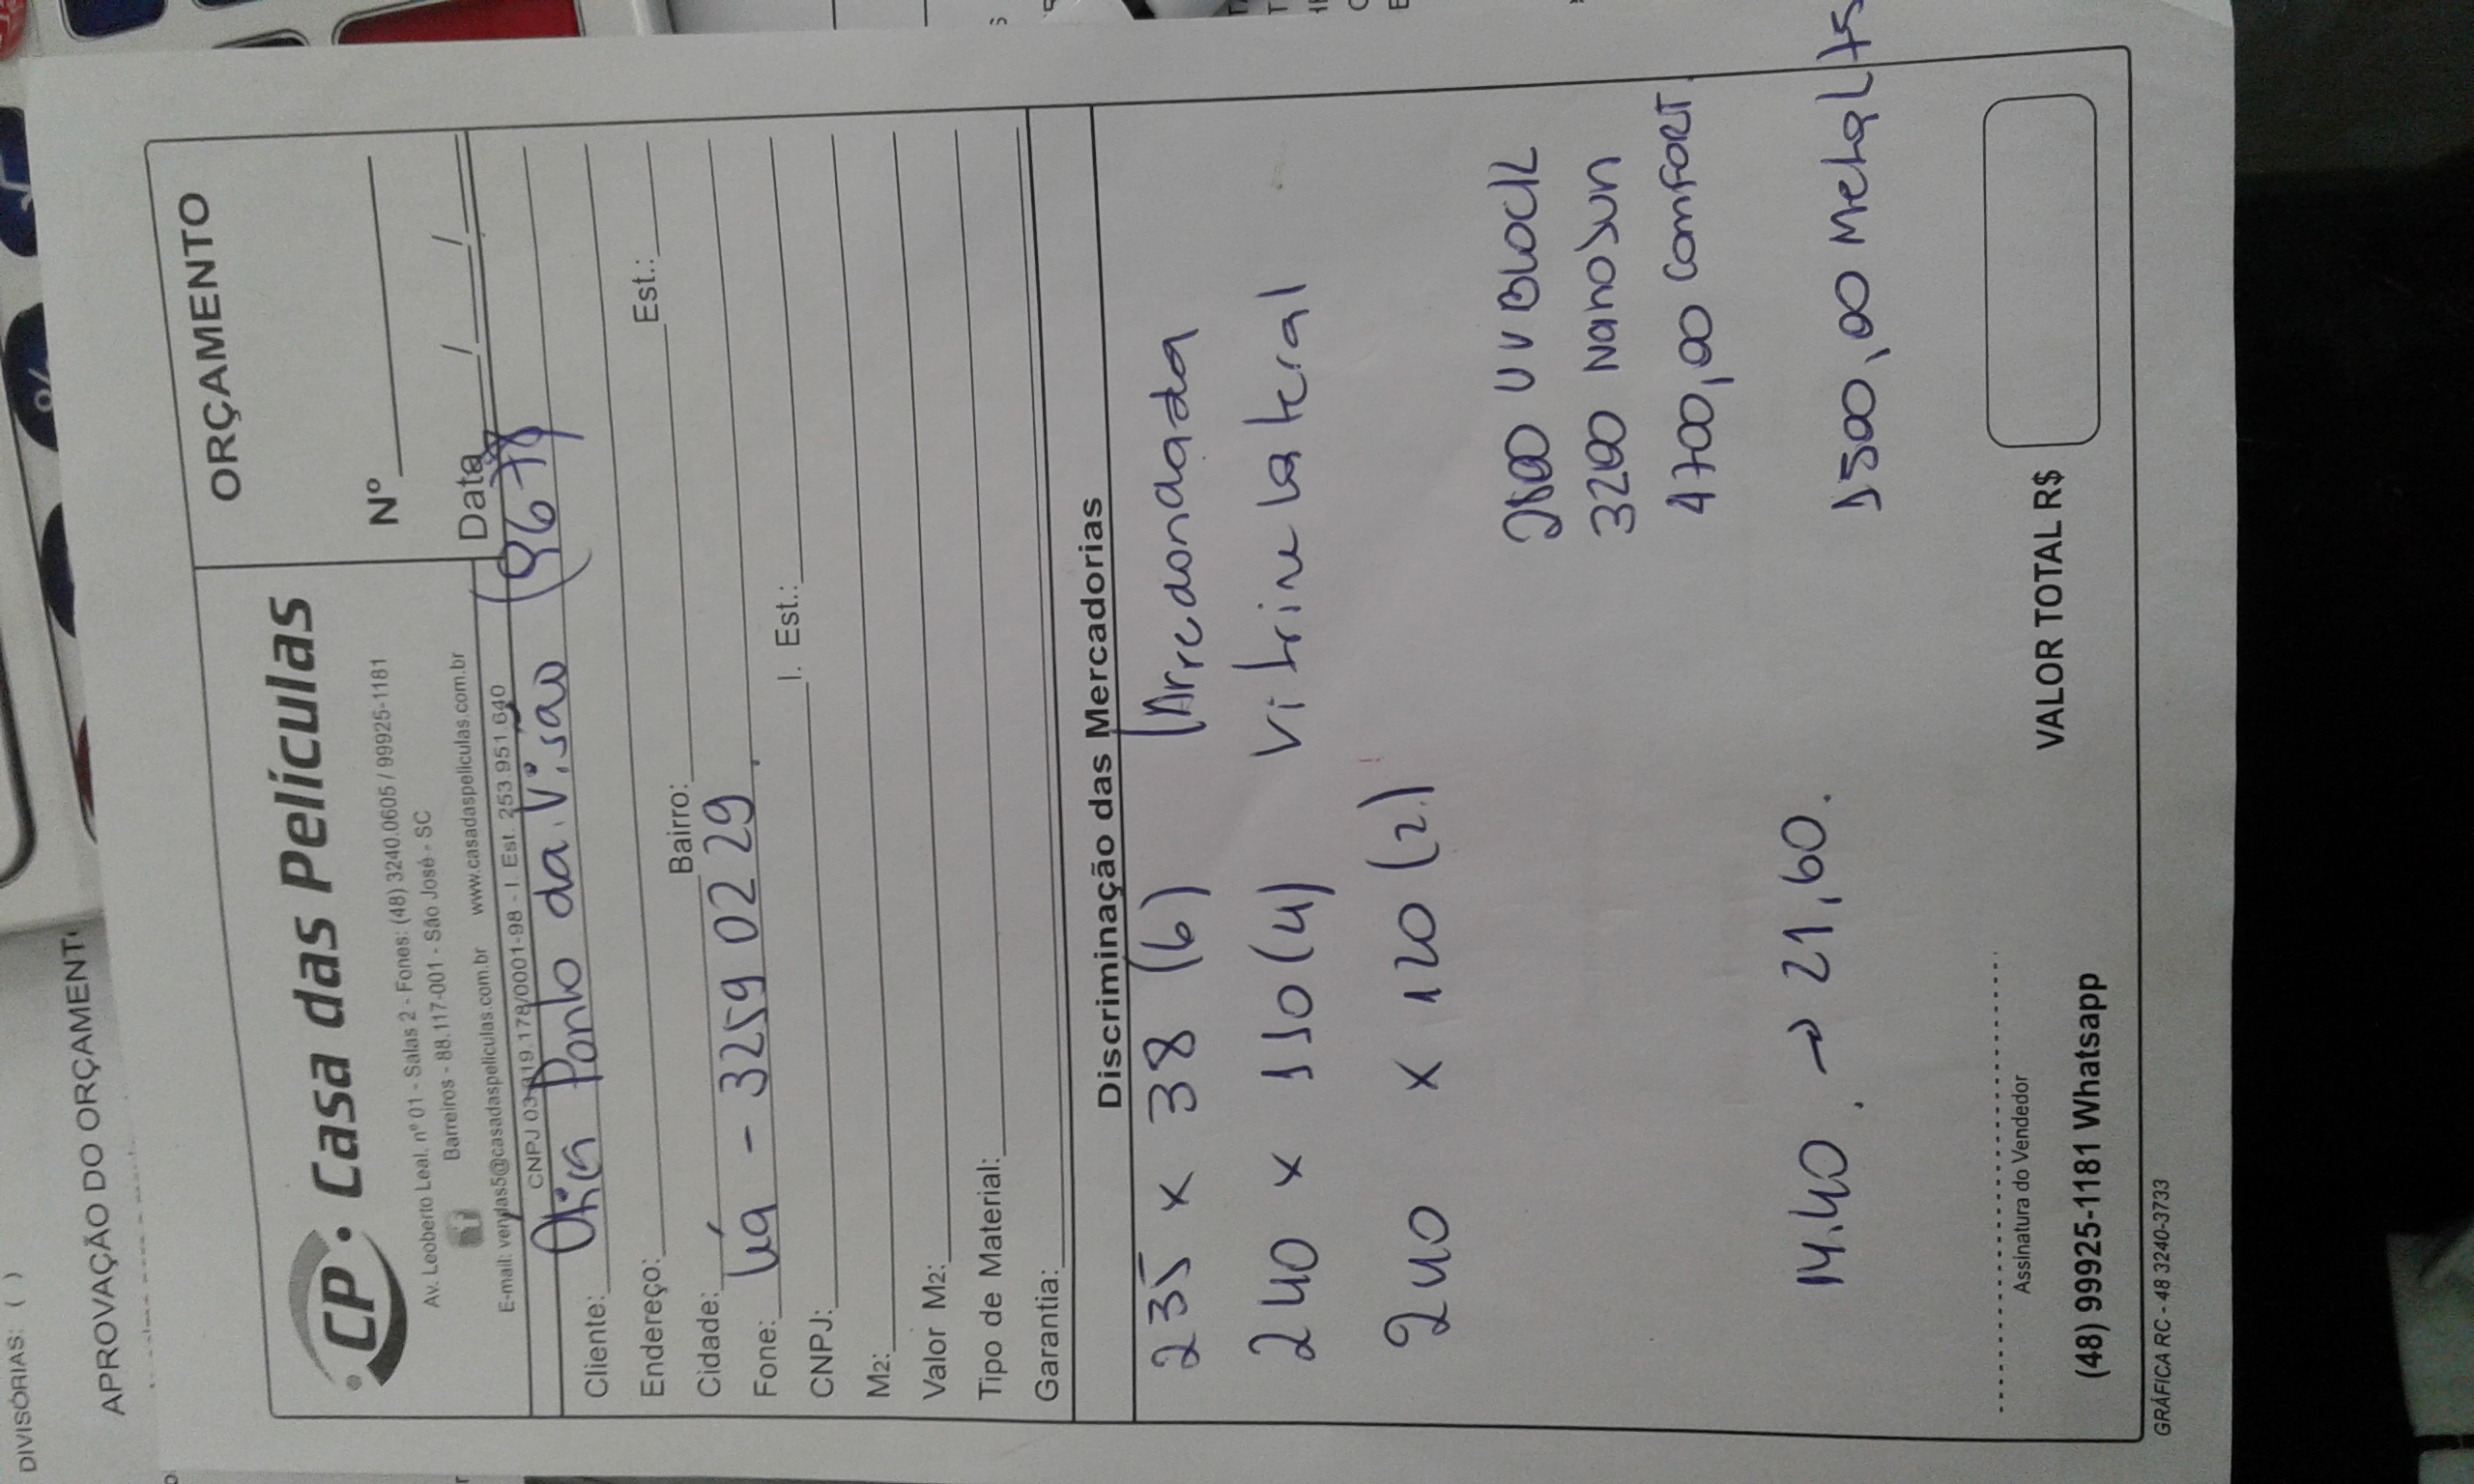 DIVISÓRIAS: ( )
APROVAÇÃO DO ORÇAMENT
CP. Casa das Películas
®
Av. Leoberto Leal, nº 01 - Salas 2 - Fones: (48) 3240.0605 / 99925-1181
Barreiros - 88.117-001 - São José - SC
E-mail: vendas5@casadaspeliculas.com.br www.casadaspeliculas.com.br
CNPJ 03.819.178/0001-98 - I. Est. 253.951.640
ORÇAMENTO
Nº
Data / /
Cliente: Otica Ponto da Visão (9678)
Endereço:
Bairro: Est.:
Cidade:
Fone: Lia - 3259 0229
CNPJ: I. Est.:
M2:
Valor M2:
Tipo de Material:
Garantia:
Discriminação das Mercadorias
235 x 38 (6) (Arredondada
240 x 110 (4) Vitrine lateral
240 x 120 (2)
UVBlock
3200 NanoSun
4700,00 Comfort
14.40. → 21,60.
1500,00 Metal 75
VALOR TOTAL R$
Assinatura do Vendedor
(48) 99925-1181 Whatsapp
GRÁFICA RC - 48 3240-3733